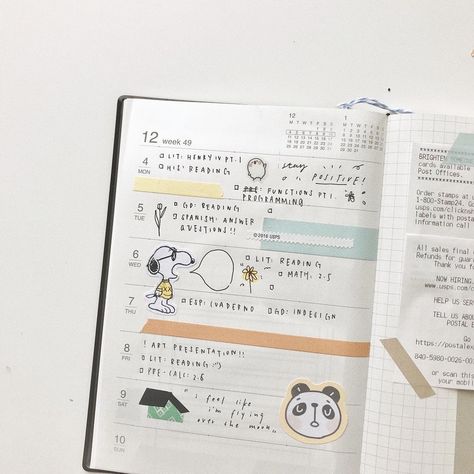 12 week 49
12
M T W T F S S
1
M T W T F S S
4
MON
LIT: HENRY IV PT. 1
HIS' READING
stay
POSITIVE!
FUNCTIONS PT 1.
PROGRAMMING
5
TUE
GD: READING
SPANISH: ANSWER
QUESTIONS!!
© 2016 USPS
6
WED
LIT: READING
MATH: 2-5
7
THU
ESP: CUADERNO
GD: INDESIGN
8
FRI
! ART PRESENTATION!!
LIT: READING :")
PRE-CALC: 2-6
9
SAT
"i feel like
i'm flying
over the moon"
10
SUN
BRIGHTEN
cards available
Post Offices.
Order stamps at
1-800-Stamp24.
usps.com/clicknsh
labels with posta
information call
All sales final
Refunds for guar
Thank you
NOW HIRING
www.usps.com/
HELP US SER
TELL US ABOU
POSTAL
Go
https://postalex
840-5980-0026-00
or scan this
your mobile